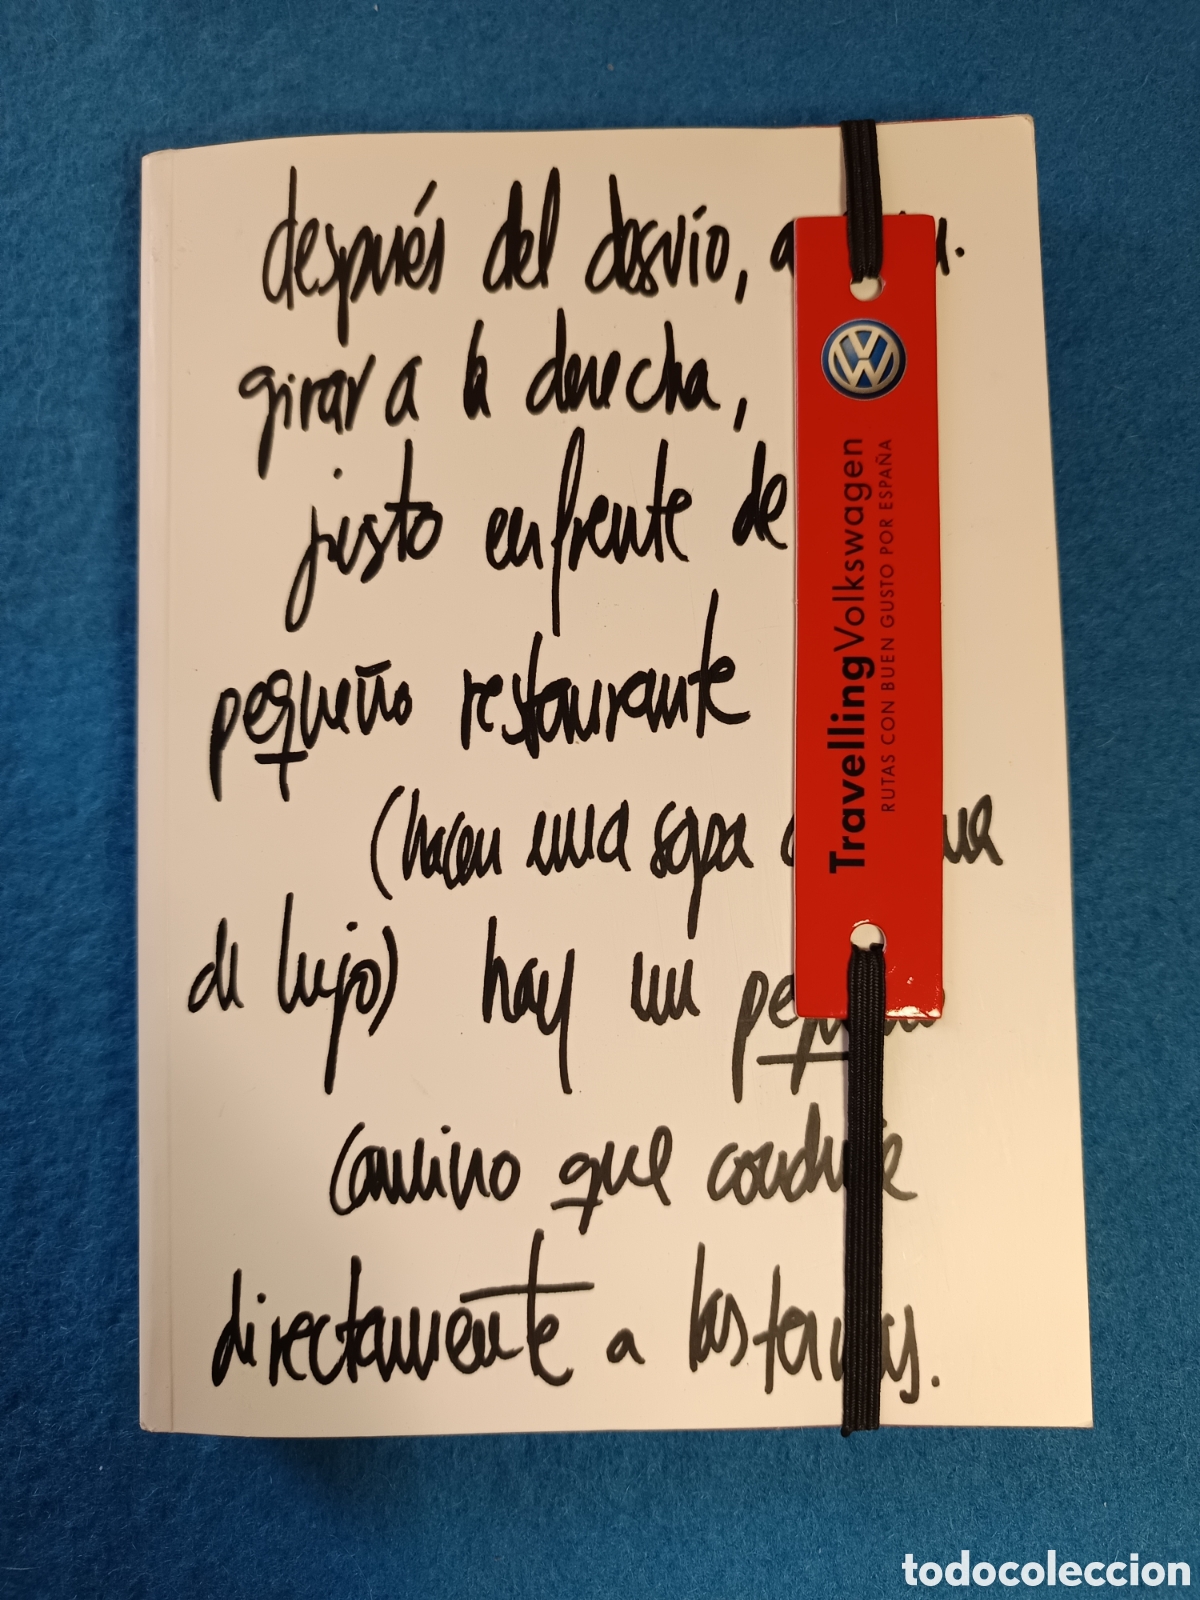 después del desvío,
girar a la derecha,
justo enfrente de
pequeño restaurante
(hacen una sopa
de lujo) hay un pequeño
camino que conduce
directamente a las termas.
TravellingVolkswagen
RUTAS CON BUEN GUSTO POR ESPAÑA
todocoleccion